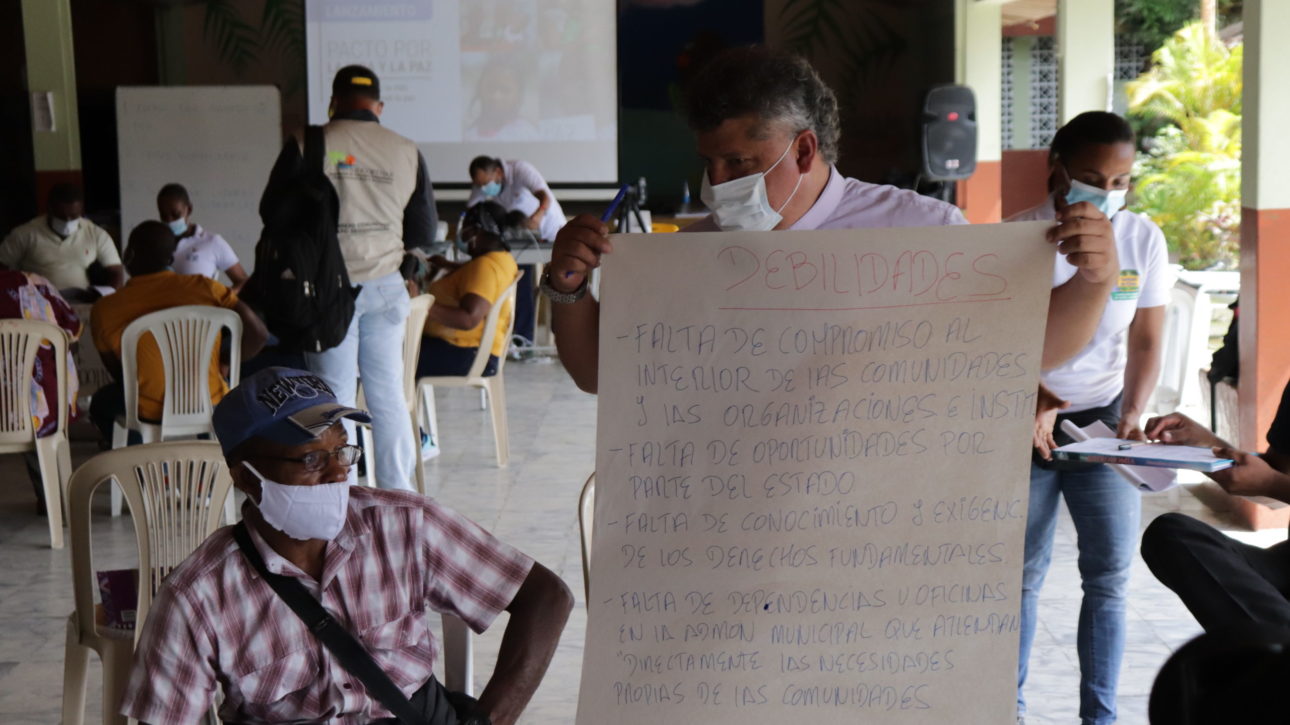 LANZAMIENTO
PACTO POR
LA VIDA Y LA PAZ
NEW YORK
DEBILIDADES
- FALTA DE COMPROMISO AL
INTERIOR DE LAS COMUNIDADES
Y LAS ORGANIZACIONES E INSTIT
- FALTA DE OPORTUNIDADES POR
PARTE DEL ESTADO
- FALTA DE CONOCIMIENTO Y EXIGENC.
DE LOS DERECHOS FUNDAMENTALES
- FALTA DE DEPENDENCIAS U OFICINAS
EN LA ADMON MUNICIPAL QUE ATIENDAN
"DIRECTAMENTE LAS NECESIDADES
PROPIAS DE LAS COMUNIDADES